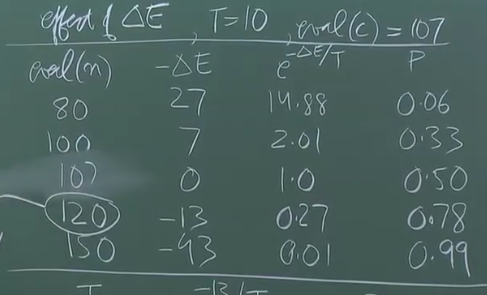 effect of ΔE, T=10, eval(c) = 107
eval(n) -ΔE e^-ΔE/T P
80 27 14.88 0.06
100 7 2.01 0.33
107 0 1.0 0.50
120 -13 0.27 0.78
150 -43 0.01 0.99
T -13/T